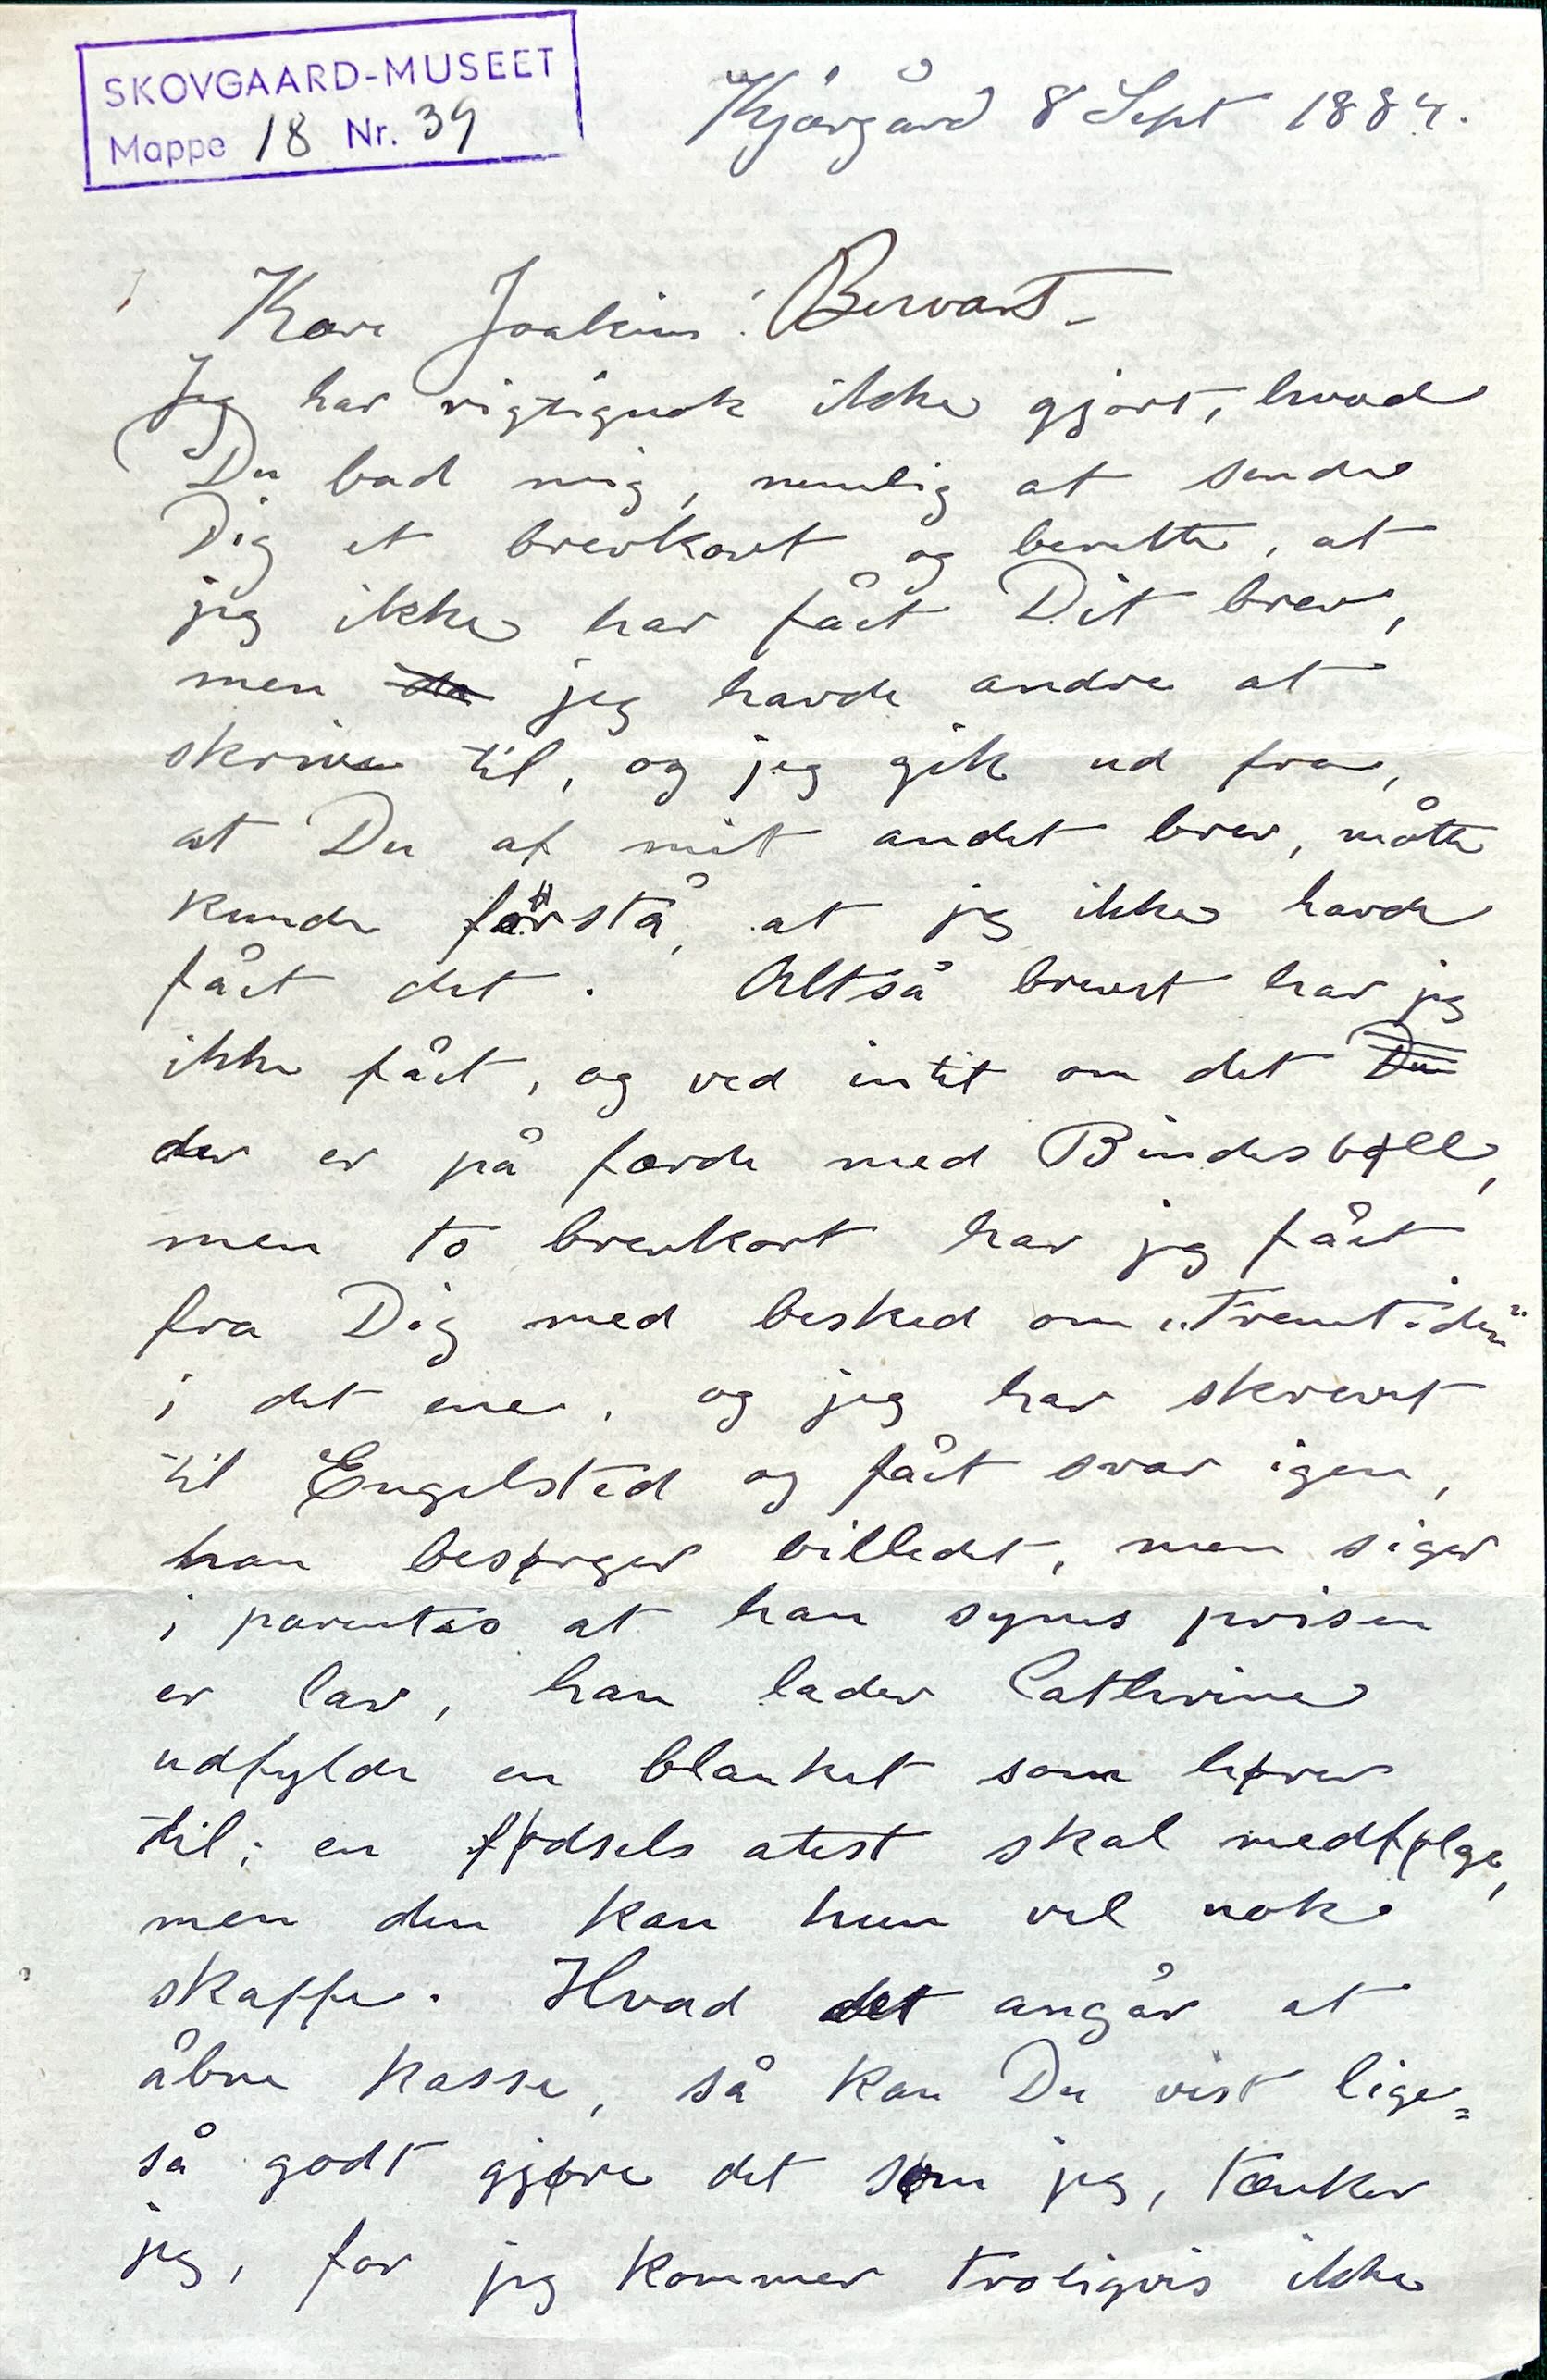 SKOVGAARD-MUSEET
Mappe 18 Nr. 39
Kjørgård 8 Sept 1884.
Kære Joakim! Besvart.
Jeg har rigtignok ikke gjort, hvad
Du bad mig, nemlig at sende
Dig et brevkort og berette, at
jeg ikke har fået Dit brev,
men da jeg havde andre at
skrive til, og jeg gik ud fra,
at Du af mit andet brev, måtte
kunde förstå, at jeg ikke havde
fået det. Altså brevet har jeg
ikke fået, og ved intet om det Du
der er på færde med Bindesbøll,
men to brevkort har jeg fået
fra Dig med besked om „Fremtiden"
i det ene, og jeg har skrevet
til Engelsted og fået svar igen,
han besørger billedet, men siger
i parentes at han synes prisen
er lav, han lader Cathrine
udfylde en blanket som hører
til; en fødsels atest skal medfølge,
men den kan hun vel nok
skaffe. Hvad det angår at
åbne kasse, så kan Du vist lige=
så godt gjøre det som jeg, tænker
jeg, for jeg kommer troligvis ikke